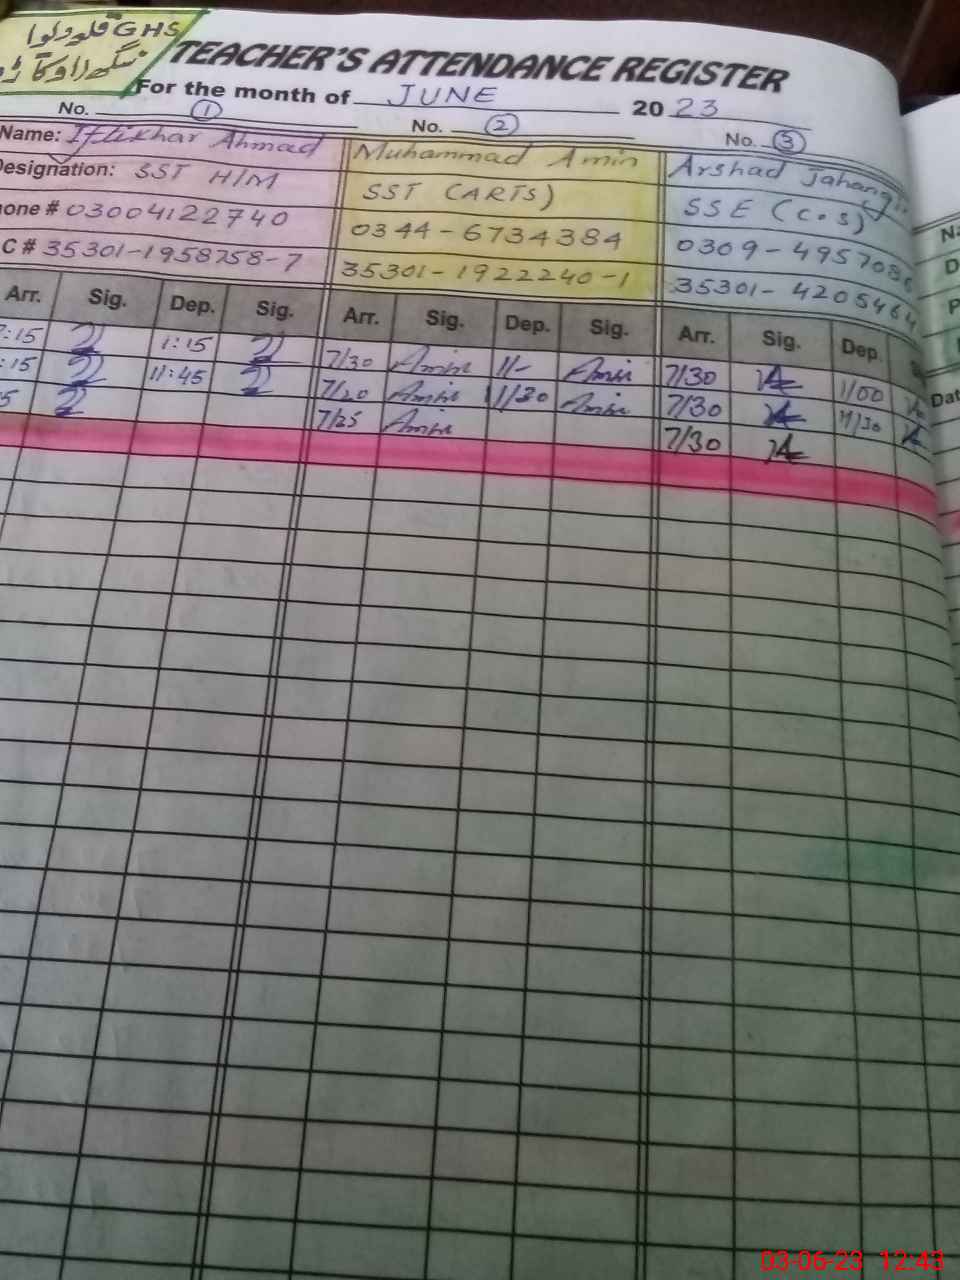 GHS قلعہ دلوا
سنگھ اوکاڑہ
TEACHER'S ATTENDANCE REGISTER
For the month of JUNE 2023
No. 1 No. 2 No. 3
Name: Iftikhar Ahmad Muhammad Amin Arshad Jahangir
Designation: SST H/M SST (ARTS) SSE (C.S)
one # 03004122740 0344-6734384 0309-495708
C # 35301-1958758-7 35301-1922240-1 35301-4205464
Arr. Sig. Dep. Sig. Arr. Sig. Dep. Sig. Arr. Sig. Dep.
7:15 1:15 7/30 Amin 11/- Amin 7/30 1/00
:15 11:45 7/20 Amin 11/30 Amin 7/30 11/30
5 7/25 Amin 7/30
Na
D
P
Dat
03-06-23 12:43